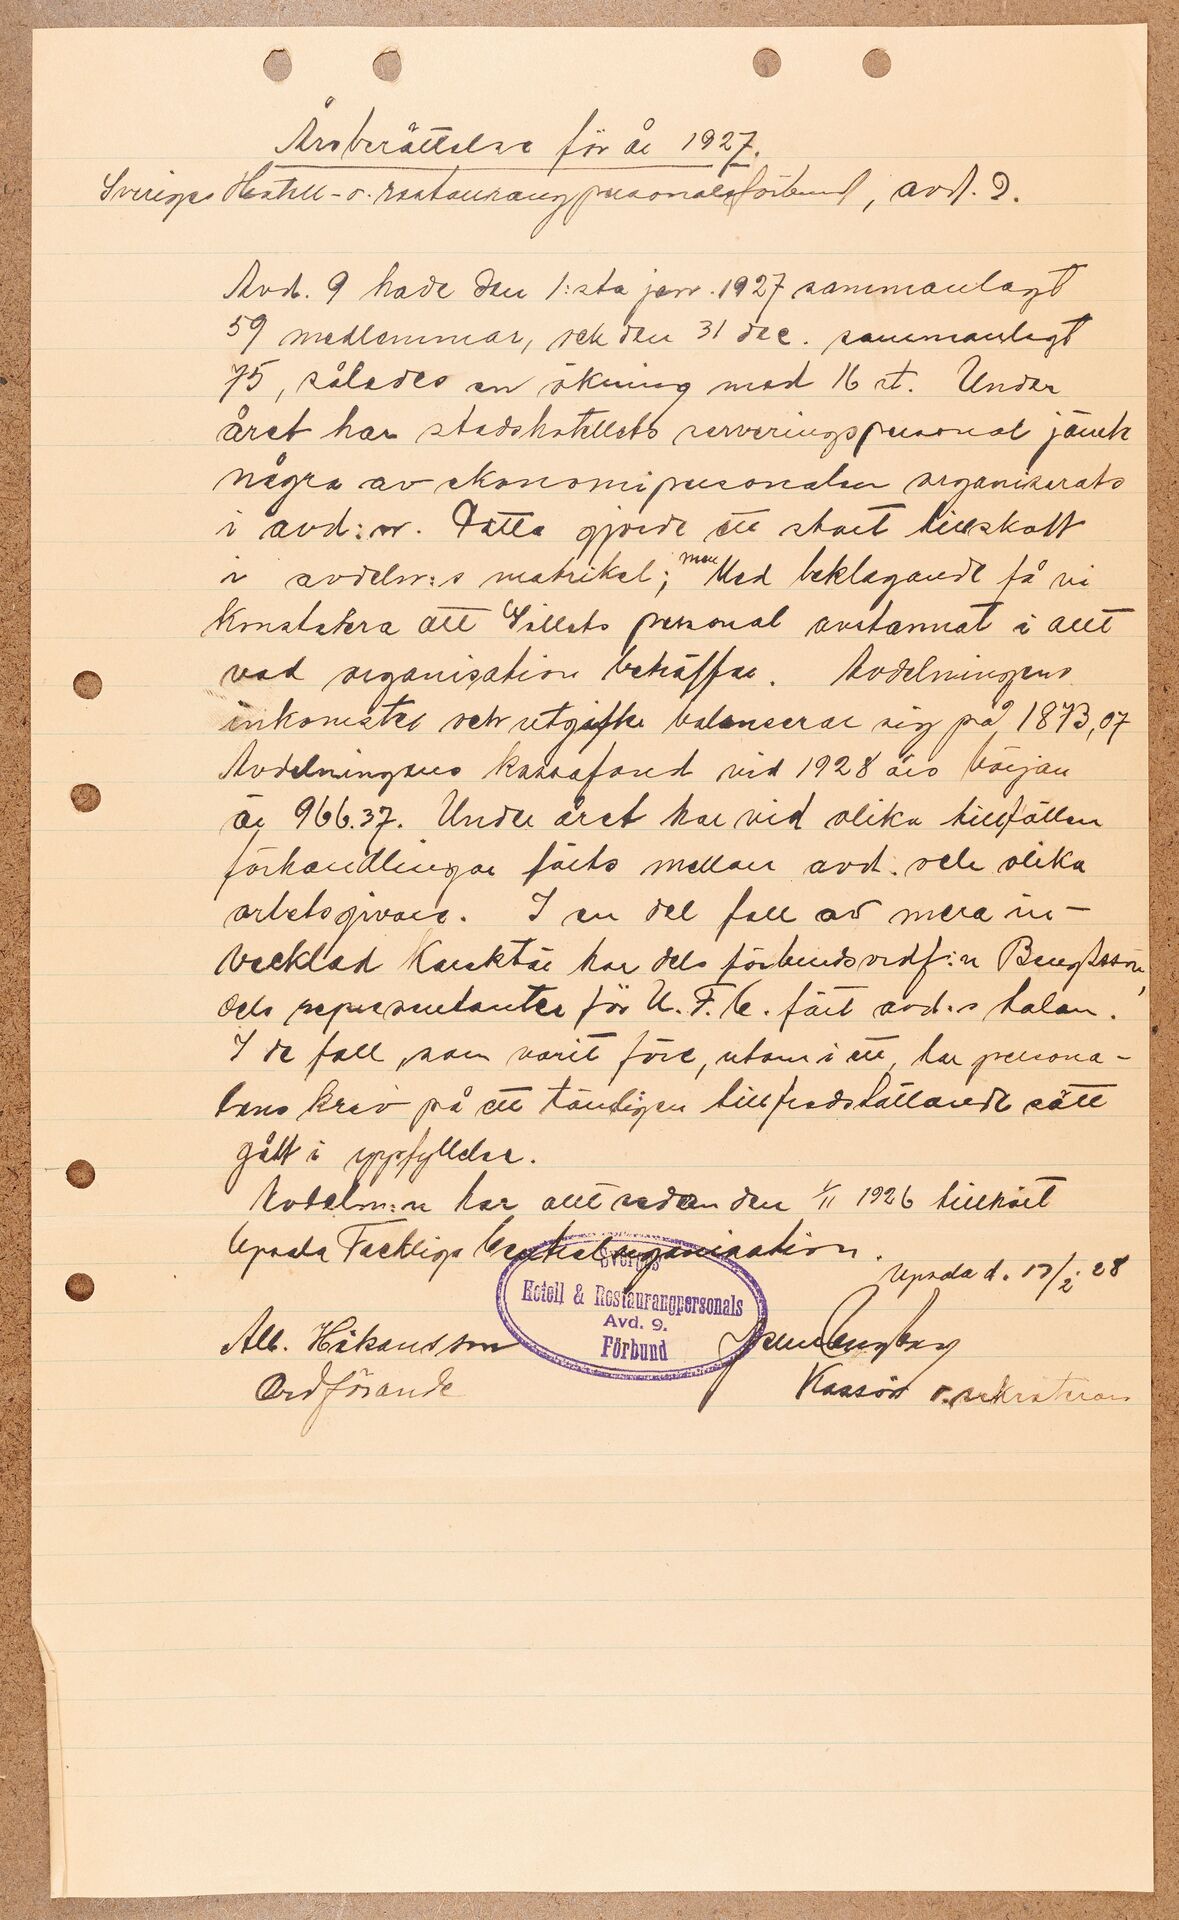 Årsberättelse för år 1927.
Sveriges Hotell- o. restaurangpersonalsförbund, avd. 9.
Avd. 9 hade den 1:sta jan. 1927 sammanlagt
59 medlemmar, och den 31 dec. sammanlagt
75, således en ökning med 16 st. Under
året har stadshotellets serveringspersonal jämte
några av ekonomipersonalen organiserats
i avd:n. Detta gjorde ett stort tillskott
i avdeln:s matrikel; men Med beklagande få vi
konstatera att Gillets personal avstannat i allt
vad organisation beträffar. Avdelningens
inkomster och utgifter balanserar sig på 1873,07
Avdelningens kassafond vid 1928 års början
är 966.37. Under året har vid olika tillfällen
förhandlingar förts mellan avd. och olika
arbetsgivare. I en del fall av mera in-
vecklad karaktär har dels förbundsordf:n Bengtsson,
dels representanter för U.F.C. fört avd:s talan.
I de fall, som varit före, utom i ett, har persona-
lens krav på ett tämligen tillfredställande sätt
gått i uppfyllelse.
Avdeln:n har allt sedan den 1/11 1926 tillhört
Upsala Fackliga Centralorganisation.
Upsala d. 17/2 28
Sveriges
Hotell & Restaurangpersonals
Avd. 9.
Förbund
Alb. Håkansson
Ordförande
Kassör o. sekreterare